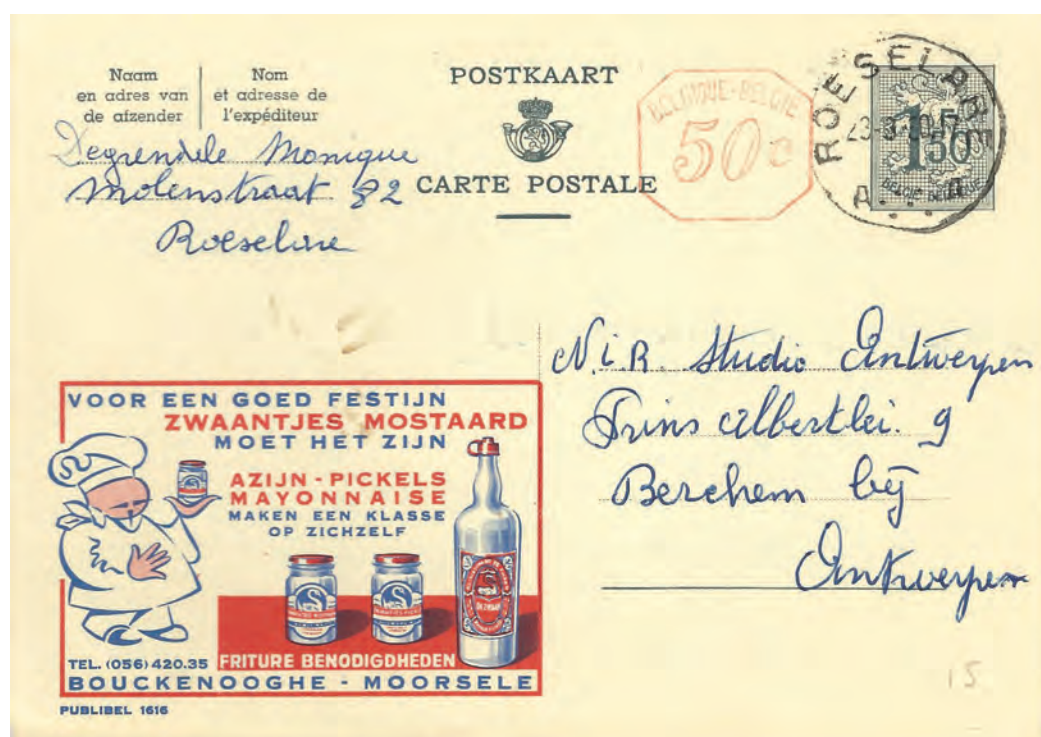 Naam
en adres van
de afzender
Nom
et adresse de
l'expéditeur
POSTKAART
CARTE POSTALE
BELGIQUE-BELGIE
50c
ROESELARE
1F50
BELGIE BELGIQUE
Degrendele Monique
Molenstraat 82
Roeselare
N.i.R. Studio Antwerpen
Prins Albertlei. 9
Berchem bij
Antwerpen
VOOR EEN GOED FESTIJN
ZWAANTJES MOSTAARD
MOET HET ZIJN
AZIJN-PICKELS
MAYONNAISE
MAKEN EEN KLASSE
OP ZICHZELF
TEL. (056) 420.35
FRITURE BENODIGDHEDEN
BOUCKENOOGHE - MOORSELE
PUBLIBEL 1616
15